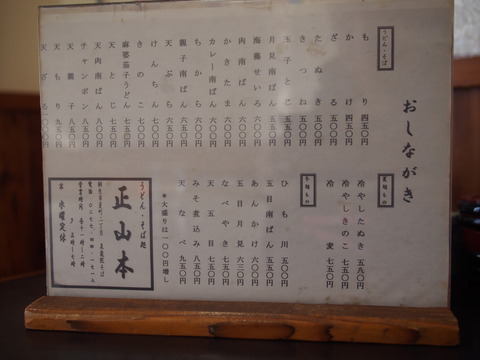 おしながき
うどん・そば
もり 四五〇円
かけ 四五〇円
ざる 五〇〇円
たぬき 五〇〇円
きつね 五〇〇円
玉子とじ 五五〇円
月見南ばん 五五〇円
海藻せいろ 六〇〇円
肉南ばん 六〇〇円
かきたま 六〇〇円
カレー南ばん 六〇〇円
ちから 六五〇円
親子南ばん 六五〇円
天ぷら 六五〇円
けんちん 七〇〇円
きのこ 七〇〇円
麻婆茄子うどん 七五〇円
天とじ 七五〇円
天肉南ばん 八〇〇円
チャンポン 八五〇円
天親子 八五〇円
天もり 九五〇円
天ざる 一〇〇〇円
夏期もの
冷やしたぬき 五八〇円
冷やしきのこ 七五〇円
冷麦 五五〇円
冬期もの
ひも川 五〇〇円
五目南ばん 五五〇円
あんかけ 六〇〇円
五目月見 六三〇円
なべやき 七五〇円
天五目 七五〇円
みそ煮込み 八五〇円
天なべ 九五〇円
*大盛りは一〇〇円増し
うどん・そば処
正山本
営業時間
水曜定休